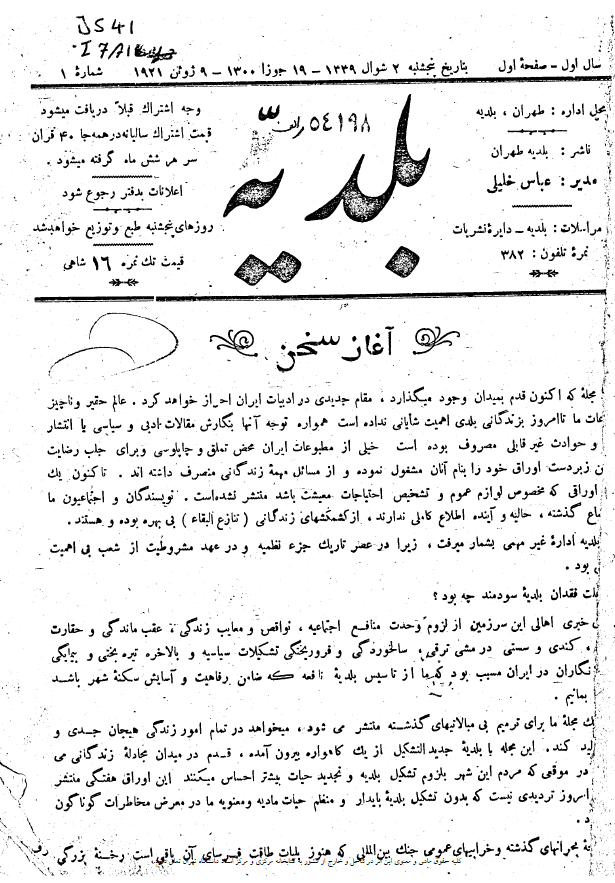 JS41
.I7A1
سال اول - صفحهٔ اول
بتاریخ پنجشنبه ۲ شوال ۱۳۳۹ - ۱۹ جوزا ۱۳۰۰ - ۹ ژوئن ۱۹۲۱
شمارهٔ ۱
محل اداره : طهران ، بلدیه
ناشر : بلدیه طهران
مدیر : عباس خلیلی
مراسلات : بلدیه - دایرهٔ نشریات
نمرهٔ تلفون : ۳۸۲
بلدیه
۵٤۱۹۸
وجه اشتراك قبلاً دریافت میشود
قیمت اشتراك سالیانه در همه جا ۴۰ قران
سر هر شش ماه گرفته میشود .
اعلانات بدفتر رجوع شود
روزهای پنجشنبه طبع و توزیع خواهد شد
قیمت تك نمره ۱۶ شاهی
آغاز سخن
مجلهٔ که اکنون قدم بمیدان وجود میگذارد ، مقام جدیدی در ادبیات ایران احراز خواهد کرد . عالم حقیر و ناچیز
ما تا امروز بزندگانی بلدی اهمیت شایانی نداده است همواره توجه آنها بنگارش مقالات ادبی و سیاسی یا انتشار
و حوادث غیر قابلی مصروف بوده است خیلی از مطبوعات ایران محض تملق و چاپلوسی و برای جلب رضایت
زبردست اوراق خود را بنام آنان مشغول نموده و از مسائل مهمهٔ زندگانی منصرف داشته اند . تا کنون یك
اوراقی که مخصوص لوازم عموم و تشخیص احتیاجات معیشت باشد منتشر نشده است . نویسندگان و اجتماعیون ما
گذشته ، حالیه و آینده اطلاع کاملی ندارند ، از کشمکشهای زندگانی ( تنازع البقاء ) بی بهره بوده و هستند .
بلدیه ادارهٔ غیر مهمی بشمار میرفت ، زیرا در عصر تاریك جزء نظمیه و در عهد مشروطیت از شعب بی اهمیت
بود .
فقدان بلدیهٔ سودمند چه بود ؟
خبری اهالی این سرزمین از لزوم وحدت منافع اجتماعیه ، نواقص و معایب زندگی ، عقب ماندگی و حقارت
، کندی و سستی در مشی ترقی ، سالخوردگی و فروریختگی تشکیلات سیاسیه و بالاخره تیره بختی و بیپایگی
نگاران در ایران مسبب بود که ما از تاسیس بلدیهٔ نافعه که ضامن رفاهیت و آسایش سکنهٔ شهر باشد
بمانیم .
مجلهٔ ما برای ترمیم بی مبالاتیهای گذشته منتشر می شود ، میخواهد در تمام امور زندگی هیجان جدی و
کند . این مجله با بلدیهٔ جدید التشکیل از یك گاهواره بیرون آمده ، قدم در میدان مجادلهٔ زندگانی می
در موقعی که مردم این شهر بلزوم تشکیل بلدیه و تجدید حیات بیشتر احساس میکنند این اوراق هفتگی منتشر
امروز تردیدی نیست که بدون تشکیل بلدیهٔ پایدار و منظم حیات مادیه و معنویه ما در معرض مخاطرات گوناگون
بحرانهای گذشته و خرابیهای عمومی جنك بین المللی که هنوز بلیات طاقت فرسای آن باقی است رخنهٔ بزرگی